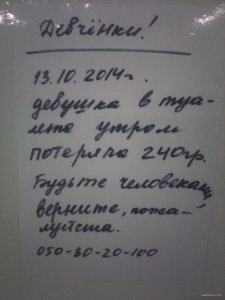 Девчінки!
13.10.2014г.
девушка в туа-
лете утром
потеряла 240гр.
Будьте человеками,
верните, пожа-
луйста.
050-80-20-100